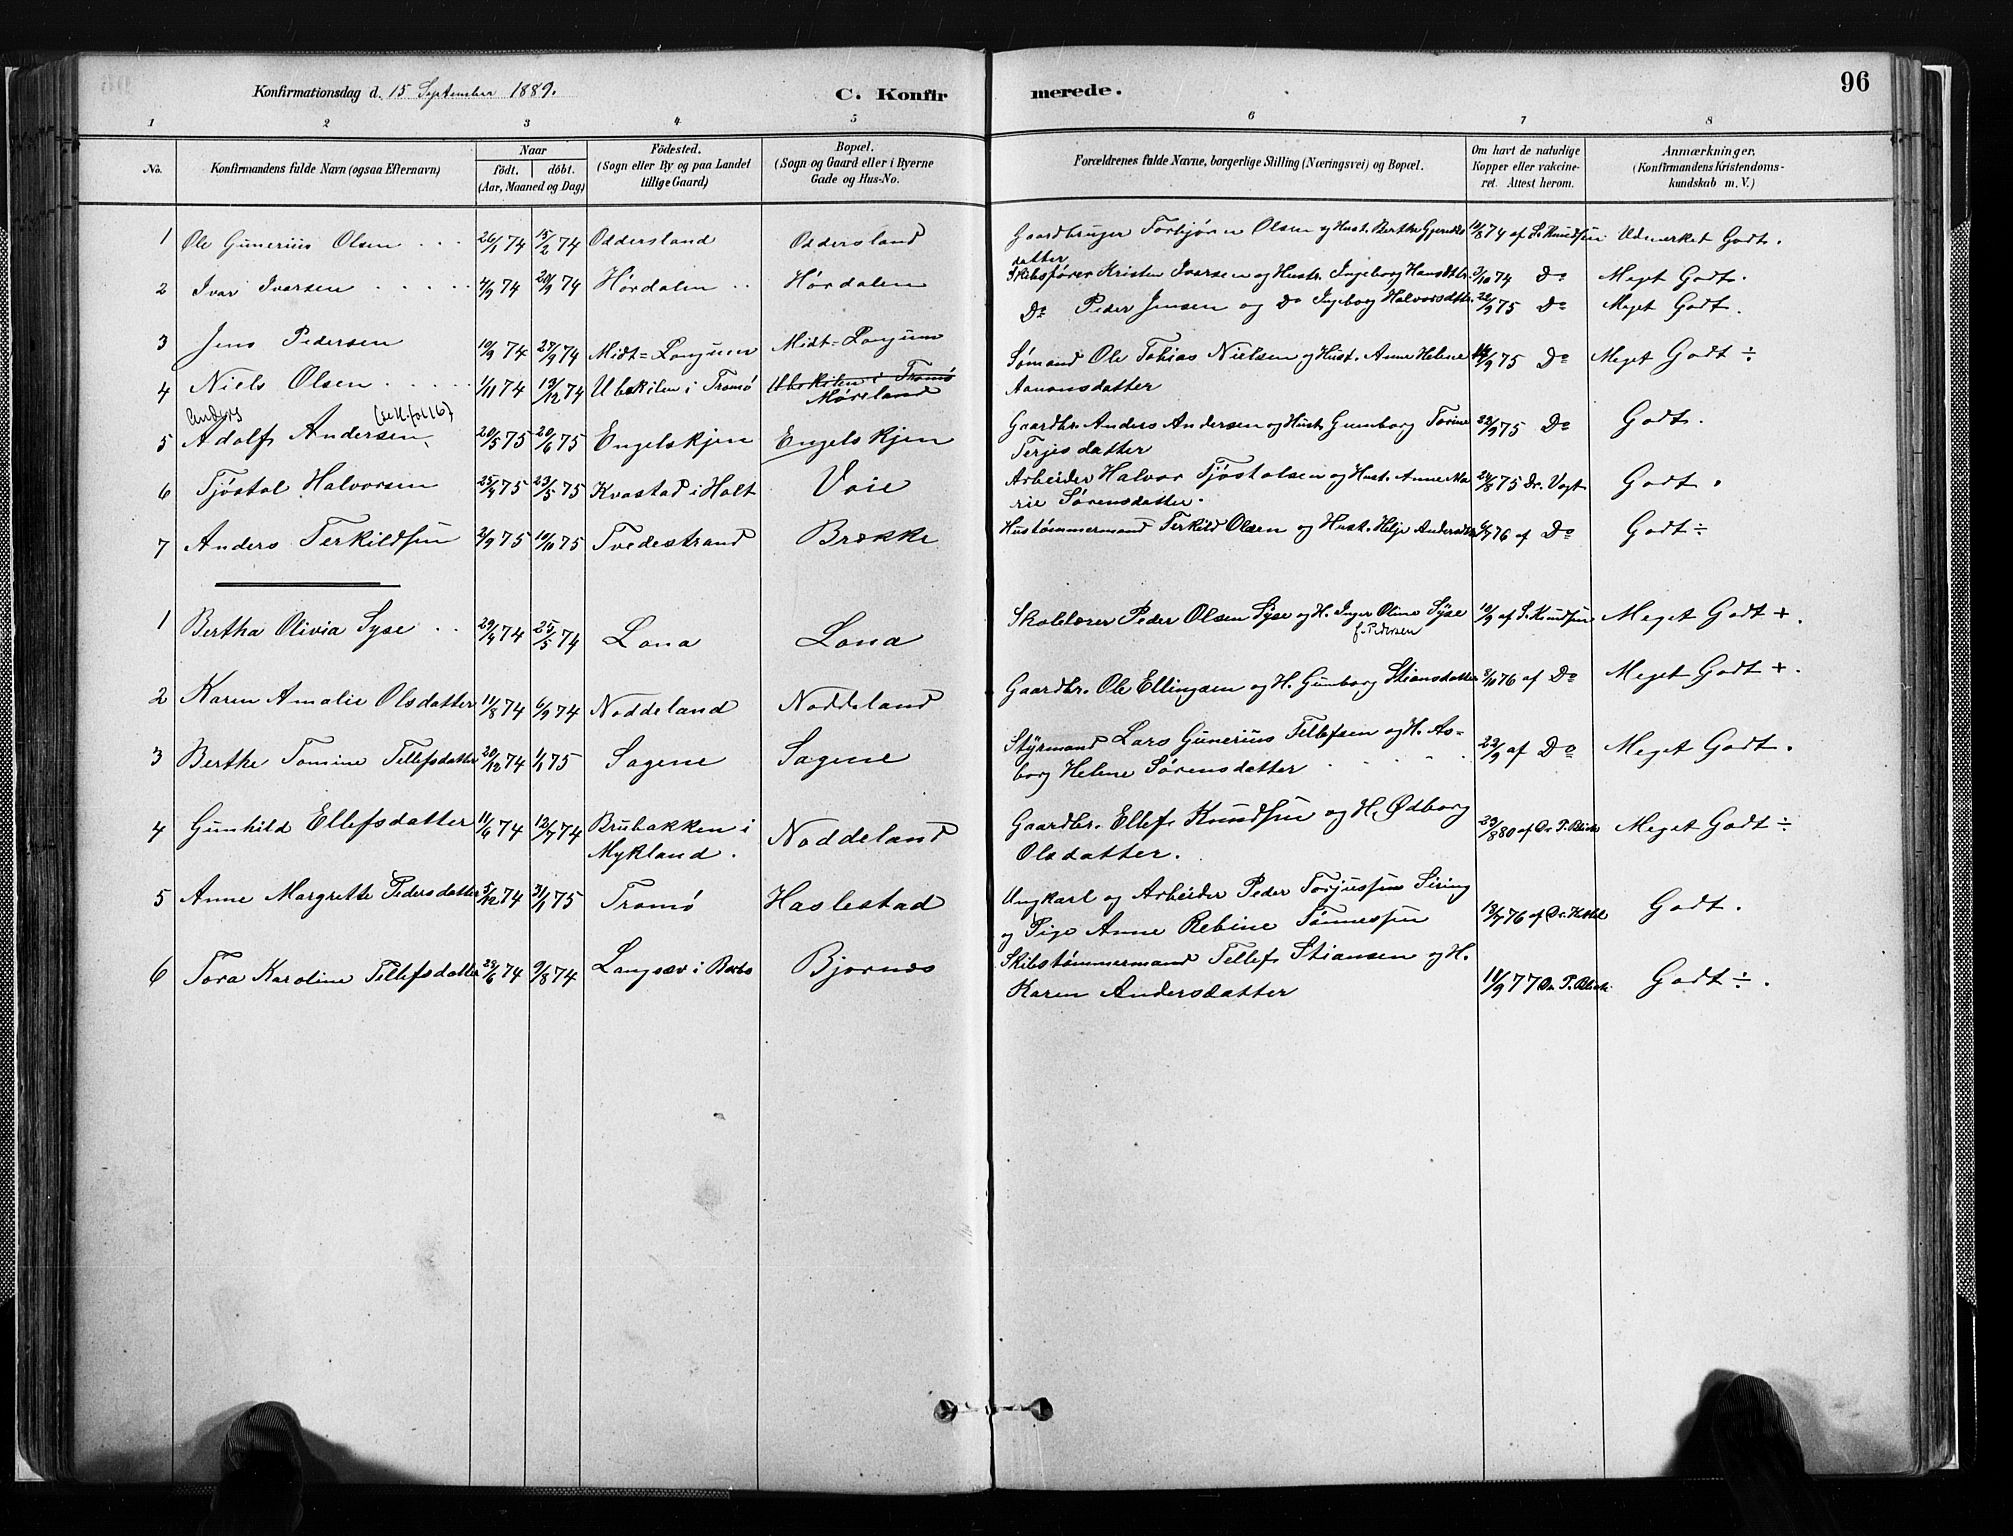 Konfirmationsdag d. 15 September 1889.
C. Konfirmerede.
96
1 2 3 4 5 6 7 8
No.
Konfirmandens fulde Navn (ogsaa Efternavn)
Naar
födt. döbt.
(Aar, Maaned og Dag)
Födested.
(Sogn eller By og paa Landet
tillige Gaard)
Bopæl.
(Sogn og Gaard eller i Byerne
Gade og Hus-No.
Forældrenes fulde Navne, borgerlige Stilling (Næringsvei) og Bopæl.
Om havt de naturlige
Kopper eller vakcine-
ret. Attest herom.
Anmærkninger,
(Konfirmandens Kristendoms-
kundskab m. V.)
1 Ole Gunerius Olsen 26/1 74 15/2 74 Oddersland Oddersland Gaardbruger Torbjørn Olsen og Hust. Berthe Gjeruldsdatter 74 af S. Knudsen Udmerket Godt.
2 Ivar Ivarsen 4/9 74 20/9 74 Hørdalen Hørdalen Skibsfører Kristen Ivarsen og Hustr. Ingeborg Hansdtr. 3/10 74 Do Meget Godt.
3 Jens Pedersen 10/9 74 27/9 74 Midt=Longum Midt=Longum Do Peder Jensen og Do Ingeborg Halvorsdtr. 22/9 75 Do Meget Godt.
4 Niels Olsen 1/11 74 13/12 74 Ubekilen i Tromø Ubekilen i Tromø
Møreland
Sømand Ole Tobias Nielsen og Hust. Anne Helene
Aanonsdatter
14/9 75 Do Meget Godt ÷
Anders (se K. fol 16)
5 Adolf Andersen 20/5 75 20/6 75 Engelskjen Engelskjen Gaardbr. Anders Andersen og Hust. Gunborg Torine
Terjesdatter
22/9 75 Do Godt.
6 Tjøstol Halvorsen 25/4 75 23/5 75 Kvastad i Holt Voie Arbeider Halvor Tjøstolsen og Hust. Anne Ma-
rie Sørensdatter.
24/8 75 Dr. Vogt Godt.
7 Anders Terkildsen 2/9 75 10/10 75 Tvedestrand Brække Hustømmermand Terkild Olsen og Hust. Helje Andersdtr. 76 af Do Godt ÷
1 Bertha Olivia Syse 29/4 74 25/5 74 Lona Lona Skolelærer Peder Olsen Syse og H. Inger Oline Syse
f. Pedersen
10/9 af S. Knudsen Meget Godt +.
2 Karen Amalie Olsdatter 11/8 74 6/9 74 Noddeland Noddeland Gaardbr. Ole Ellingsen og H. Gunborg Stiansdatter 8/10 76 af Do Meget Godt +.
3 Berthe Tomine Tellefsdatter 20/12 74 1/1 75 Sagene Sagene Styrmand Lars Gunerius Tellefsen og H. As-
borg Helene Sørensdatter
22/9 af Do Meget Godt.
4 Gunhild Ellefsdatter 11/6 74 12/7 74 Brubakken i
Mykland.
Noddeland Gaardbr. Ellef Knudsen og H. Ødborg
Olsdatter.
23/8 80 af Dr. P. Meget Godt ÷
5 Anne Margrethe Pedersdatter 5/12 74 31/1 75 Tromø Haslestad Ungkarl og Arbeider Peder Torjussen Siring
og Pige Anne Rebine Tønnessen
13/7 76 af Dr. Godt.
6 Tora Karoline Tellefsdatter 28/6 74 9/8 74 Langsæv i Barbo Bjornes Skibstømmermand Tellef Stiansen og H.
Karen Andersdatter
11/9 77 Dr. P. Godt ÷.